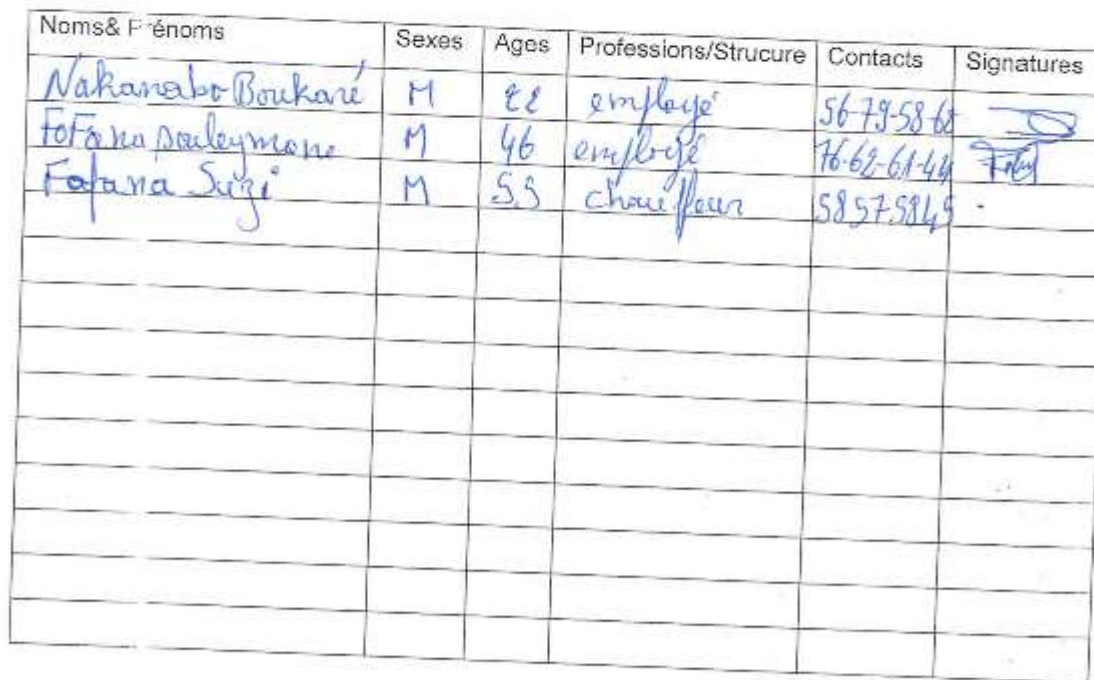 Noms& Prénoms Sexes Ages Professions/Strucure Contacts Signatures
Nakanabo Boukaré M 22 employé 56-79-58-68
Fofana souleymane M 46 employé 76-62-61-44
Fofana M 55 chauffeur